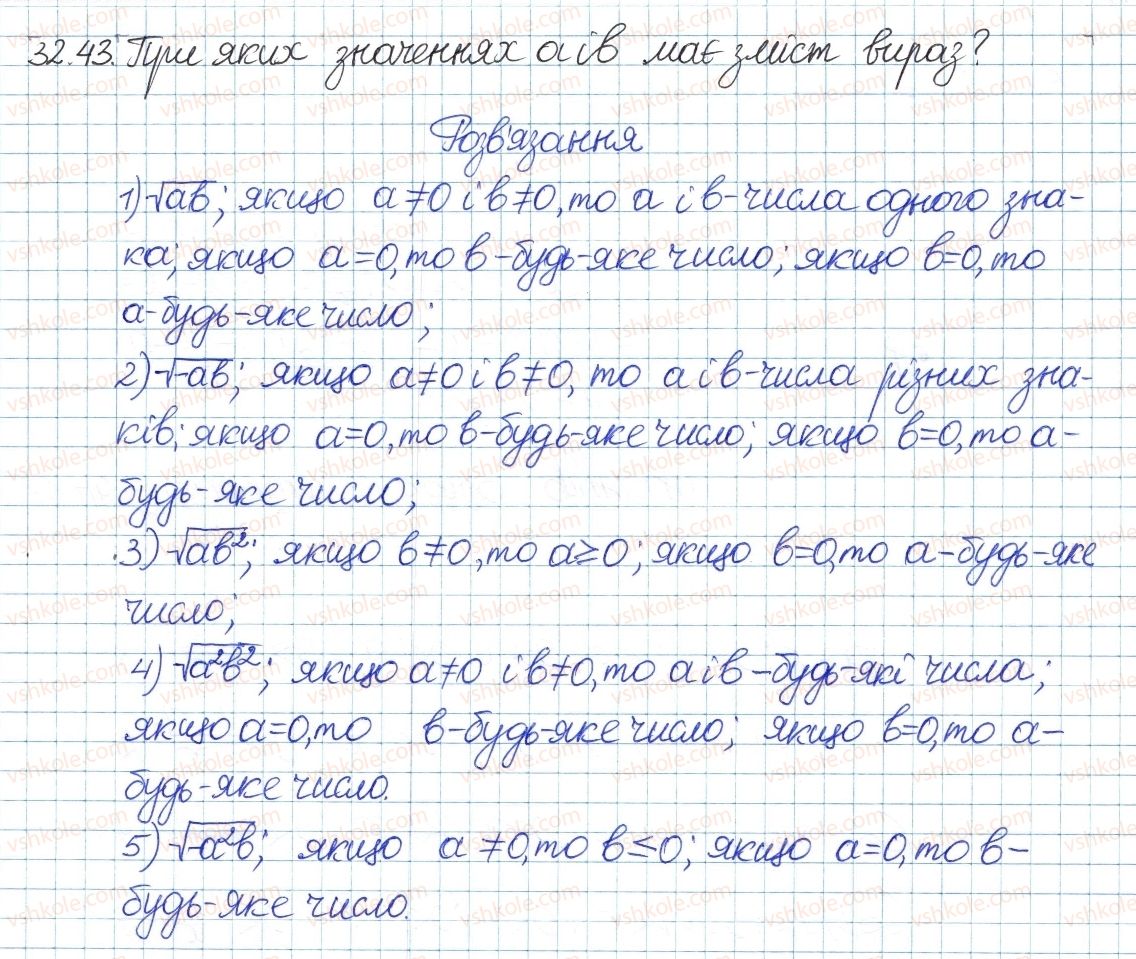 32.43. При яких значеннях a і b має зміст вираз?
Розв'язання
1) √ab; якщо a≠0 і b≠0, то a і b - числа одного зна-
ка; якщо a=0, то b - будь-яке число; якщо b=0, то
a - будь-яке число;
2) √-ab; якщо a≠0 і b≠0, то a і b - числа різних зна-
ків; якщо a=0, то b - будь-яке число; якщо b=0, то a -
будь-яке число;
3) √ab²; якщо b≠0, то a≥0; якщо b=0, то a - будь-яке
число;
4) √a²b²; якщо a≠0 і b≠0, то a і b - будь-які числа;
якщо a=0, то b - будь-яке число; якщо b=0, то a -
будь-яке число.
5) √-a²b; якщо a≠0, то b≤0; якщо a=0, то b -
будь-яке число.